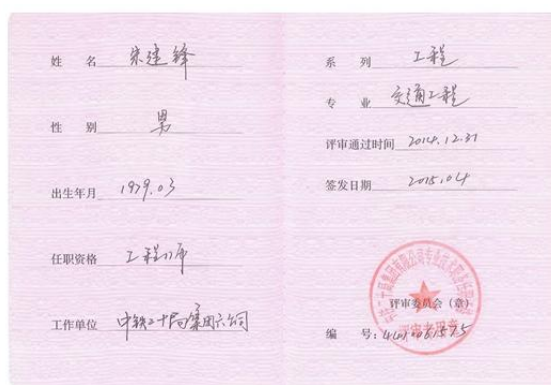 姓 名 朱建锋
性 别 男
出生年月 1979.03
任职资格 工程师
工作单位 中铁二十局集团六公司
系 列 工程
专 业 交通工程
评审通过时间 2014.12.31
签发日期 2015.04
评审委员会（章）
编 号：